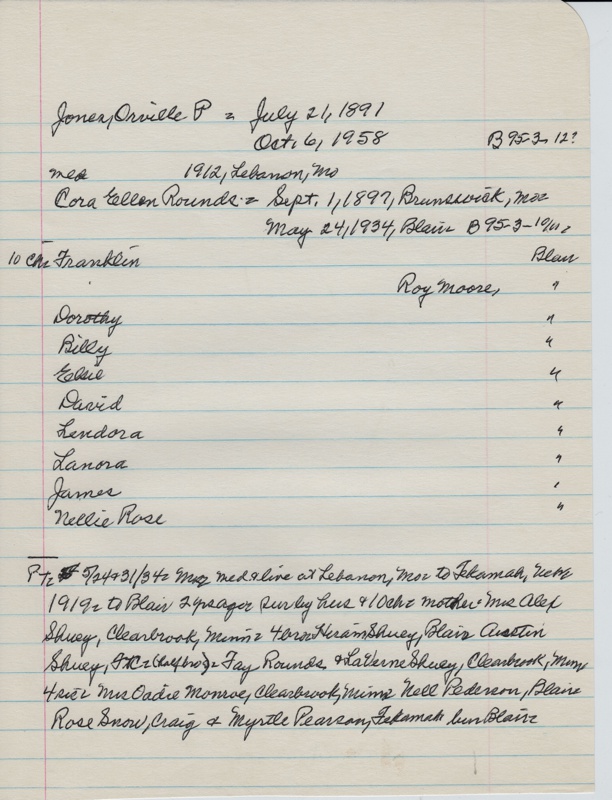 Jones, Orville P = July 21, 1891
Oct. 6, 1958 B 95-3-12?
med 1912, Lebanon, Mo
Cora Ellen Rounds = Sept. 1, 1897, Brunswick, Mo=
May 24, 1934, Blair B 95-3-10/11=
10 Ch= Franklin Blair
Roy Moore, "
Dorothy "
Billy "
Elsie "
David "
Lendora "
Lanora "
James "
Nellie Rose "
PT= 5/24&31/34= med & live at Lebanon, Mo= to Tekamah, Nebr
1919= to Blair 2 yrs ago= sur by hus & 10 ch= mother= Mrs Alex
Shuey, Clearbrook, Minn= 4 bro= Hiram Shuey, Blair Austin
Shuey, (half bro)= Fay Rounds & LaVerne Shuey, Clearbrook, Minn
4 sis= Mrs Oadie Monroe, Clearbrook, Minn= Nell Pederson, Blair
Rose Snow, Craig & Myrtle Pearson, Tekamah bur Blair=